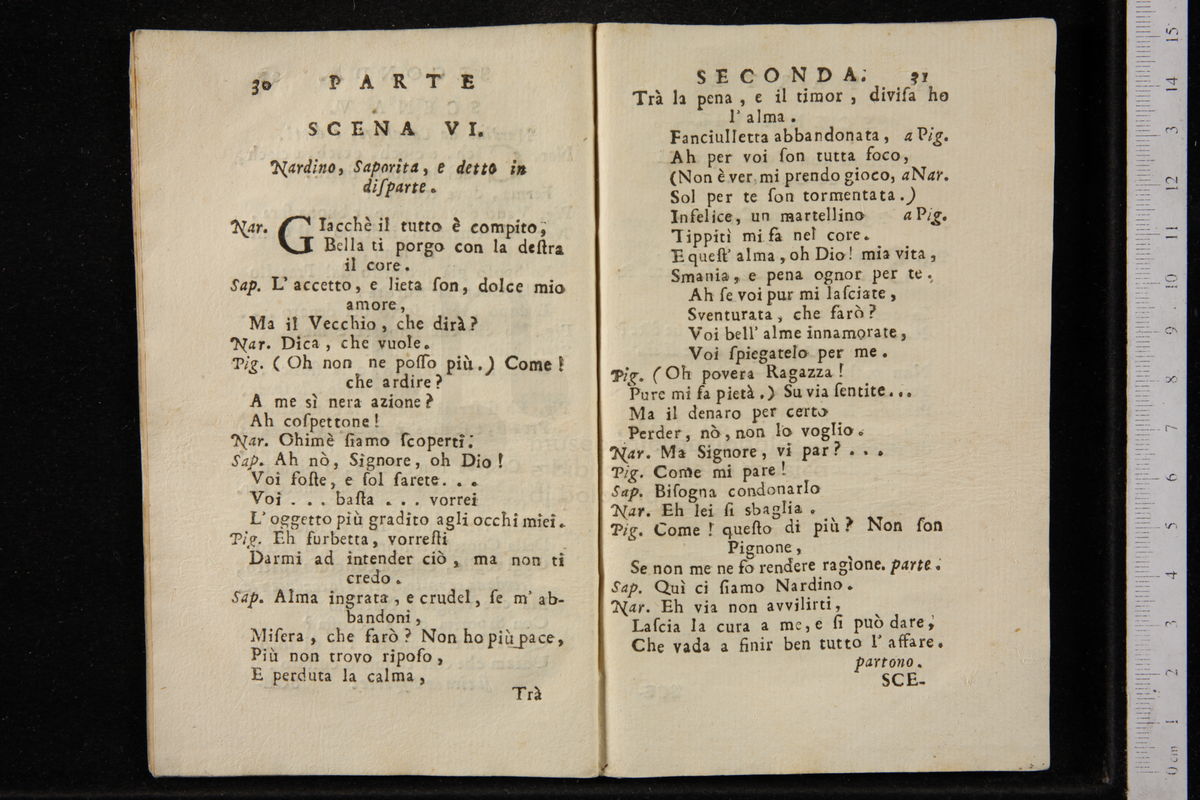 30 PARTE
SCENA VI.
Nardino, Saporita, e detto in
diſparte.
Nar. GIacchè il tutto è compito,
Bella ti porgo con la deſtra
il core.
Sap. L' accetto, e lieta ſon, dolce mio
amore,
Ma il Vecchio, che dirà?
Nar. Dica, che vuole.
Pig. (Oh non ne poſſo più.) Come!
che ardire?
A me sì nera azione?
Ah coſpettone!
Nar. Ohimè ſiamo ſcoperti.
Sap. Ah nò, Signore, oh Dio!
Voi foſte, e ſol ſarete...
Voi... baſta... vorrei
L' oggetto più gradito agli occhi miei.
Pig. Eh furbetta, vorreſti
Darmi ad intender ciò, ma non ti
credo.
Sap. Alma ingrata, e crudel, ſe m' ab-
bandoni,
Miſera, che farò? Non ho più pace,
Più non trovo ripoſo,
E perduta la calma,
Trà
SECONDA. 31
Trà la pena, e il timor, diviſa ho
l' alma.
Fanciulletta abbandonata, a Pig.
Ah per voi ſon tutta foco,
(Non è ver, mi prendo gioco, a Nar.
Sol per te ſon tormentata.)
Infelice, un martellino a Pig.
Tippitì mi fa nel core.
E queſt' alma, oh Dio! mia vita,
Smania, e pena ognor per te.
Ah ſe voi pur mi laſciate,
Sventurata, che farò?
Voi bell' alme innamorate,
Voi ſpiegatelo per me.
Pig. (Oh povera Ragazza!
Pure mi fa pietà.) Su via ſentite...
Ma il denaro per certo
Perder, nò, non lo voglio.
Nar. Ma Signore, vi par?...
Pig. Come mi pare!
Sap. Biſogna condonarlo
Nar. Eh lei ſi sbaglia.
Pig. Come! queſto di più? Non ſon
Pignone,
Se non me ne fo rendere ragione. parte.
Sap. Quì ci ſiamo Nardino.
Nar. Eh via non avvilirti,
Laſcia la cura a me, e ſi può dare,
Che vada a finir ben tutto l' affare.
partono.
SCE-
0 cm 1 2 3 4 5 6 7 8 9 10 11 12 13 14 15